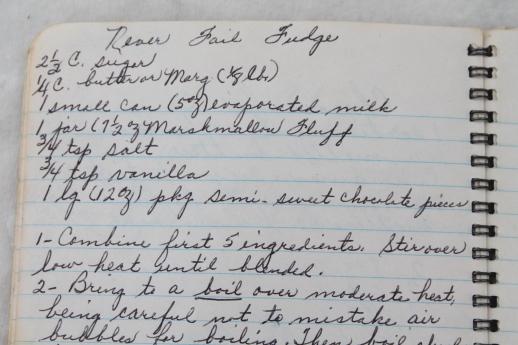 Never Fail Fudge
2½ C. sugar
¼ C. butter or Marg (⅛ lb)
1 small can (5oz) evaporated milk
1 jar (7½ oz Marshmallow Fluff
¾ tsp salt
¾ tsp vanilla
1 lg (12oz) pkg semi-sweet chocolate pieces
1- Combine first 5 ingredients. Stir over
low heat until blended.
2- Bring to a boil over moderate heat,
being careful not to mistake air
bubbles for boiling. Then boil